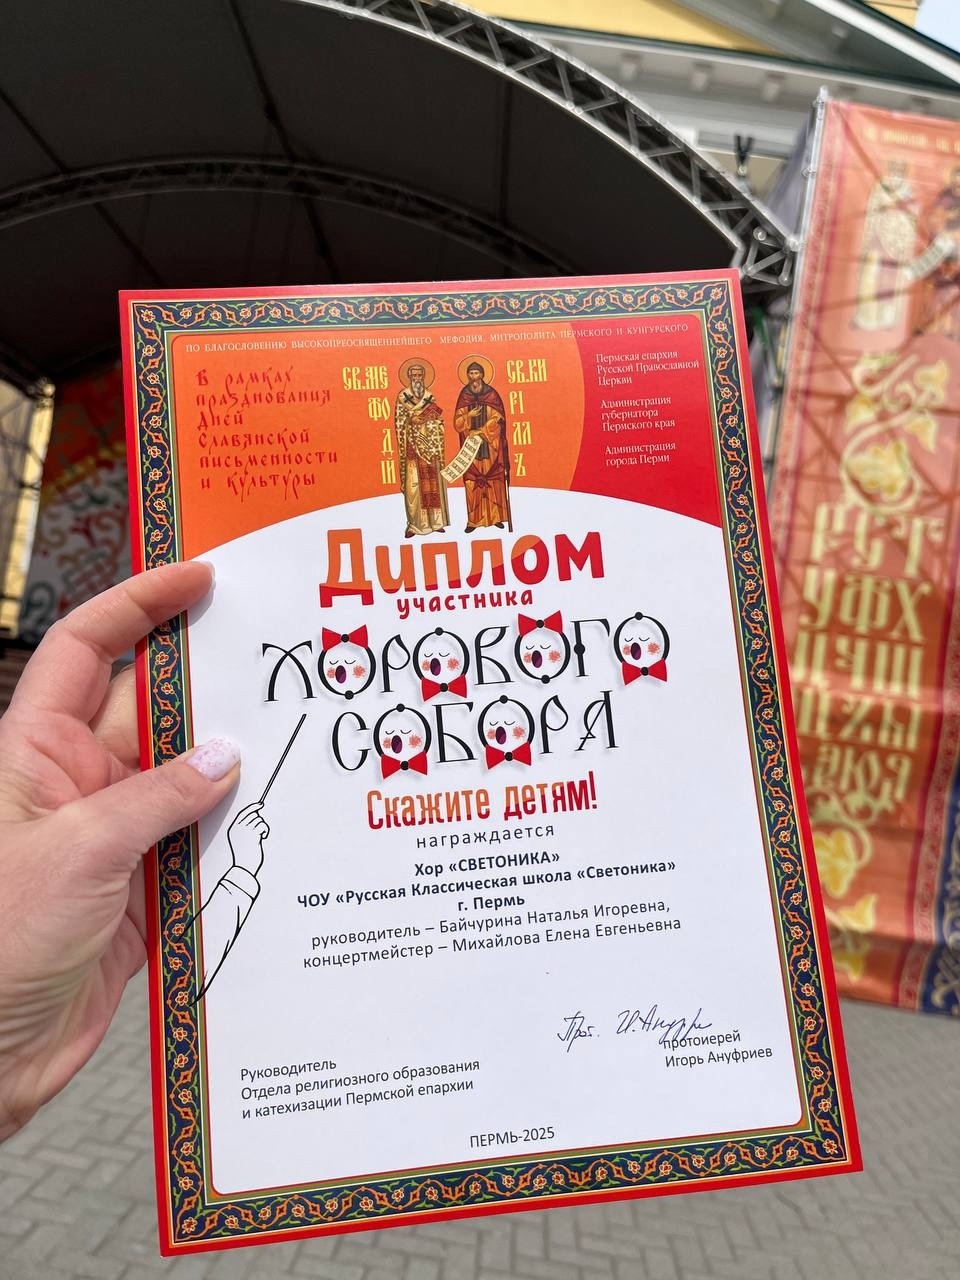 ПО БЛАГОСЛОВЕНИЮ ВЫСОКОПРЕОСВЯЩЕННЕЙШЕГО МЕФОДИЯ, МИТРОПОЛИТА ПЕРМСКОГО И КУНГУРСКОГО
В рамках
празднования
Дней
Славянской
письменности
и культуры
СВ.МЕ
ФО
Д
ІЙ
СВ.КИ
РІ
ЛЛ
Ъ
Пермская епархия
Русской Православной
Церкви
Администрация
губернатора
Пермского края
Администрация
города Перми
Диплом
участника
ХОРОВОГО
СОБОРА
Скажите детям!
награждается
Хор «СВЕТОНИКА»
ЧОУ «Русская Классическая школа «Светоника»
г. Пермь
руководитель – Байчурина Наталья Игоревна,
концертмейстер – Михайлова Елена Евгеньевна
Прот. И. Ануфри
Руководитель
Отдела религиозного образования
и катехизации Пермской епархии
протоиерей
Игорь Ануфриев
ПЕРМЬ-2025
РСТ
УФХ
ЦЧШ